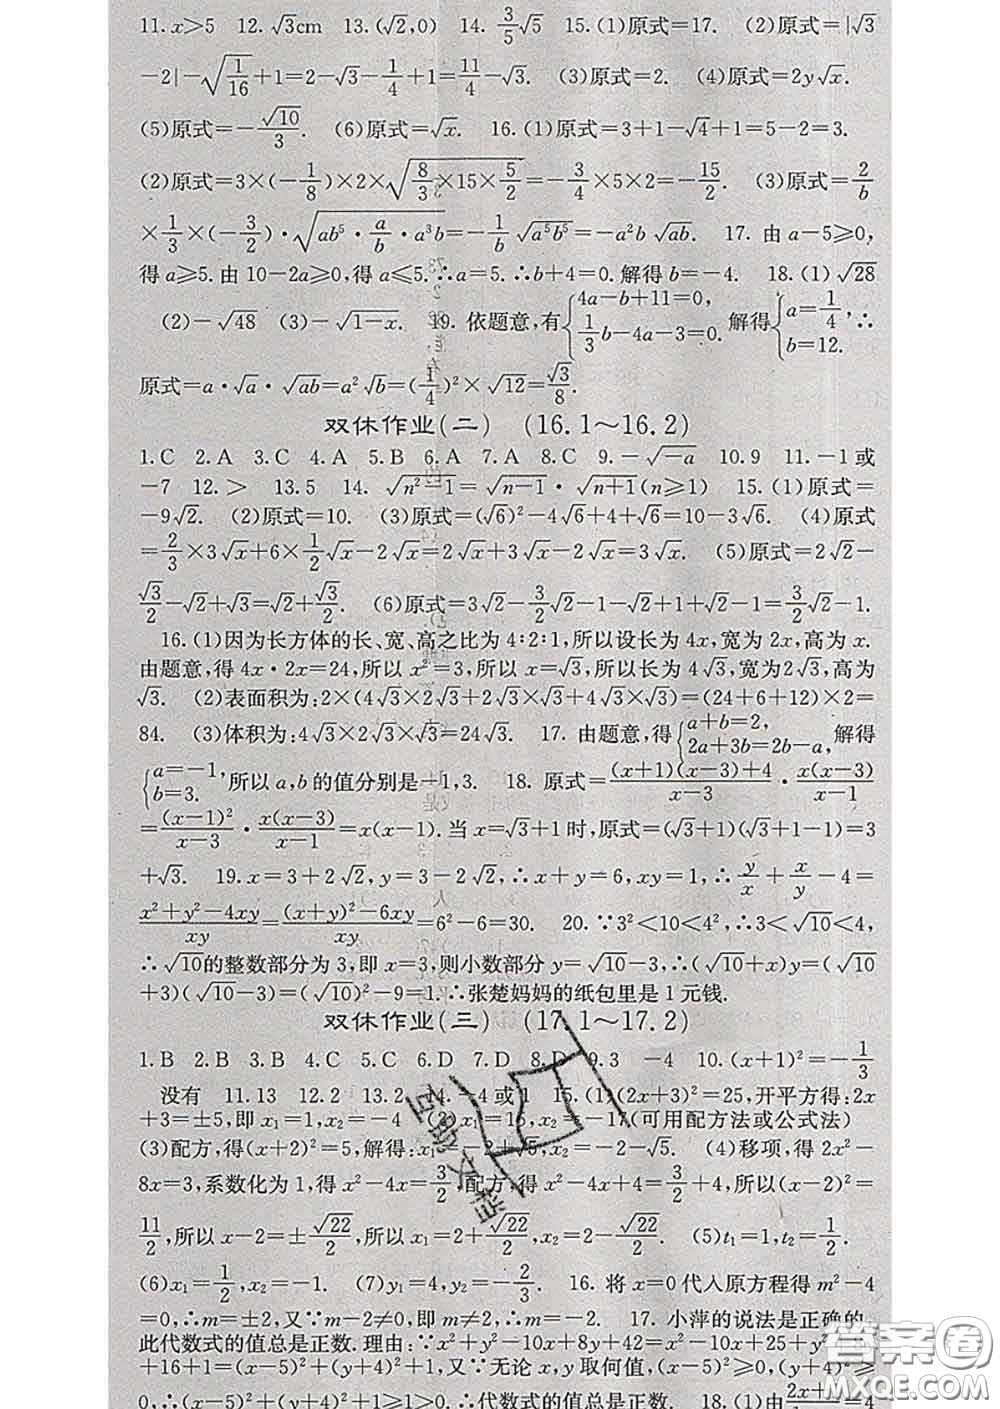 11. x⩾5　12. √3cm　13. (√2,0)　14. 3/5√5　15. (1)原式=17.　(2)原式=|√3
-2|-√(1/16)+1=2-√3-1/4+1=11/4-√3.　(3)原式=2.　(4)原式=2y√x.
(5)原式=-√10/3.　(6)原式=√x.　16. (1)原式=3+1-√4+1=5-2=3.
(2)原式=3×(-1/8)×2×√(8/3×15×5/2)=-3/4×5×2=-15/2.　(3)原式=2/b
×1/3×(-3/2)·√(ab⁵·a/b·a³b)=-1/b√(a⁵b⁵)=-a²b√(ab).　17. 由a-5⩾0,
得a⩾5.由10-2a⩾0,得a⩽5.∴a=5.∴b+4=0.解得b=-4.　18. (1)√28
(2)-√48　(3)-√(1-x).　19. 依题意,有{4a-b+11=0, 1/3b-4a-3=0. 解得{a=1/4, b=12. ∴
原式=a·√a·√(ab)=a²√b=(1/4)²×√12=√3/8.
双休作业(二)　(16.1～16.2)
1. C　2. A　3. C　4. A　5. B　6. A　7. A　8. C　9. -√(-a)　10. 9　11. -1或
-7　12. >　13. 5　14. √(n²-1)=√(n-1)·√(n+1)(n⩾1)　15. (1)原式=
-9√2.　(2)原式=10.　(3)原式=(√6)²-4√6+4+√6=10-3√6.　(4)原式
=2/3×3√x+6×1/2√x-2√x=2√x+3√x-2√x=3√x.　(5)原式=2√2-
√3/2-√2+√3=√2+√3/2.　(6)原式=3√2-3/2√2-1-√2+1+√2-1=3/2√2-1.
16. (1)因为长方体的长、宽、高之比为4:2:1,所以设长为4x,宽为2x,高为x.
由题意,得4x·2x=24,所以x²=3,所以x=√3,所以长为4√3,宽为2√3,高为
√3.　(2)表面积为:2×(4√3×2√3+2√3×√3+4√3×√3)=(24+6+12)×2=
84.　(3)体积为:4√3×2√3×√3=24√3.　17. 由题意,得{a+b=2, 2a+3b=2b-a, 解得
{a=-1, b=3. 所以a,b的值分别是-1,3.　18. 原式=((x+1)(x-3)+4)/(x-3)·x(x-3)/(x-1)
=(x-1)²/(x-3)·x(x-3)/(x-1)=x(x-1).当x=√3+1时,原式=(√3+1)(√3+1-1)=3
+√3.　19. x=3+2√2,y=3-2√2,∴x+y=6,xy=1,∴y/x+x/y-4=
(x²+y²-4xy)/xy=((x+y)²-6xy)/xy=6²-6=30.　20. ∵3²<10<4²,∴3<√10<4,
∴√10的整数部分为3,即x=3,则小数部分y=√10-3,∴(√10+x)y=(√10
+3)(√10-3)=(√10)²-9=1.∴张楚妈妈的纸包里是1元钱.
双休作业(三)　(17.1～17.2)
1. B　2. B　3. B　4. C　5. C　6. D　7. D　8. D　9. 3　-4　10. (x+1)²=-1/3
没有　11. 13　12. 2　13. 2　14. -4或1　15. (1)(2x+3)²=25,开平方得:2x
+3=±5,即x₁=1,x₂=-4　(2)x₁=15,x₂=-17(可用配方法或公式法)
(3)配方,得(x+2)²=5,解得:x₁=-2+√5,x₂=-2-√5.　(4)移项,得2x²-
8x=3,系数化为1,得x²-4x=3/2,配方,得x²-4x+4=3/2+4,所以(x-2)²=
11/2,所以x-2=±√22/2,所以x₁=2+√22/2,x₂=2-√22/2.　(5)t₁=1,t₂=1/2.
(6)x₁=1/2,x₂=-1.　(7)y₁=4,y₂=-2/3.　16. 将x=0代入原方程得m²-4
=0,∴m=±2,又∵m-2≠0,即m≠2,∴m=-2.　17. 小萍的说法是正确的,
此代数式的值总是正数.理由:∵x²+y²-10x+8y+42=x²-10x+25+y²+8y
+16+1=(x-5)²+(y+4)²+1,又∵无论x,y取何值,(x-5)²⩾0,(y+4)²⩾
0,∴(x-5)²+(y+4)²+1⩾1>0,∴代数式的值总是正数.　18. (1)由2x+
互助文档
答案圈
MXQE.COM